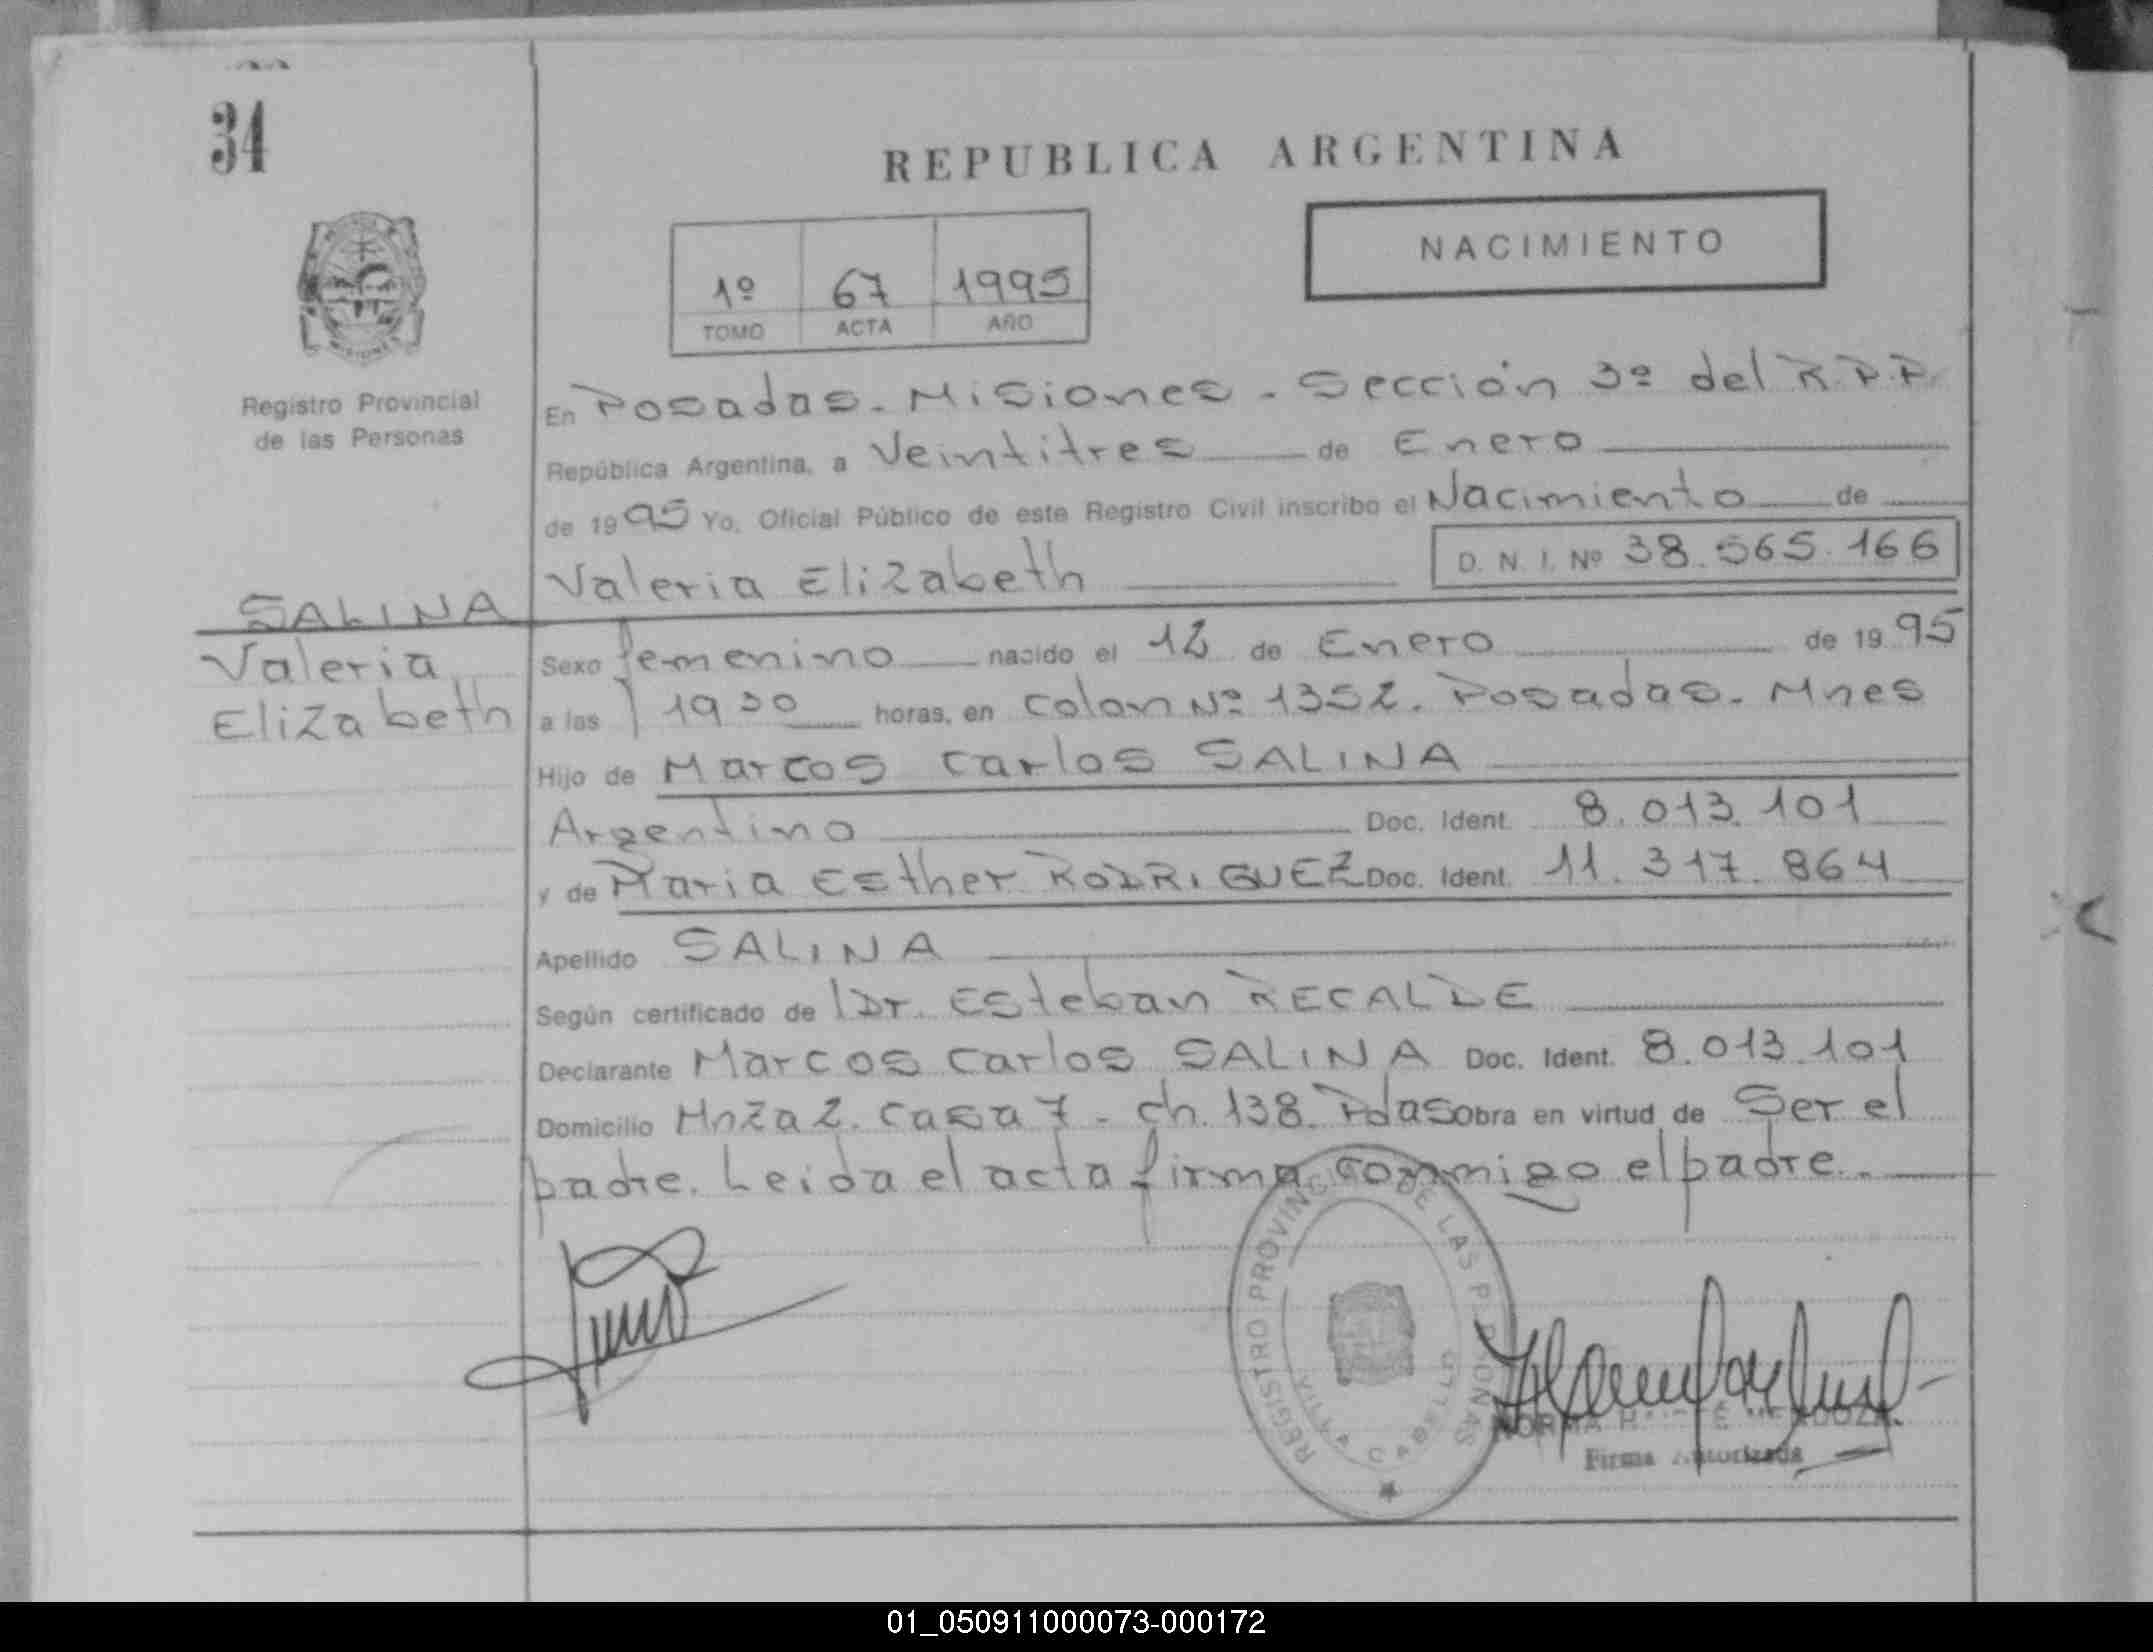 34
REPUBLICA ARGENTINA
NACIMIENTO
1º 67 1995
TOMO ACTA AÑO
MISIONES
Registro Provincial
de las Personas
En Posadas - Misiones - Sección 3º del R.P.P.
República Argentina, a Veintitres de Enero
de 1995 Yo, Oficial Público de este Registro Civil inscribo el Nacimiento de
Valeria Elizabeth D. N. I. Nº 38.565.166
SALINA
Valeria
Elizabeth
Sexo femenino nacido el de Enero de 1995
a las 19 30 horas, en Colon Nº 1352. Posadas. Mnes
Hijo de Marcos Carlos SALINA
Argentino Doc. Ident. 8.013.101
y de Maria Esther RODRIGUEZ Doc. Ident. 11.317.864
Apellido SALINA
Según certificado de Dr. Esteban RECALDE
Declarante Marcos Carlos SALINA Doc. Ident. 8.013.101
Domicilio Mnza 2. Casa 7 - ch. 138. Pdas Obra en virtud de Ser el
padre. Leida el acta firma conmigo el padre.
REGISTRO PROVINCIAL DE LAS PERSONAS
VILLA CABELLO
NORMA MENDOZA
Firma Autorizada
01_050911000073-000172